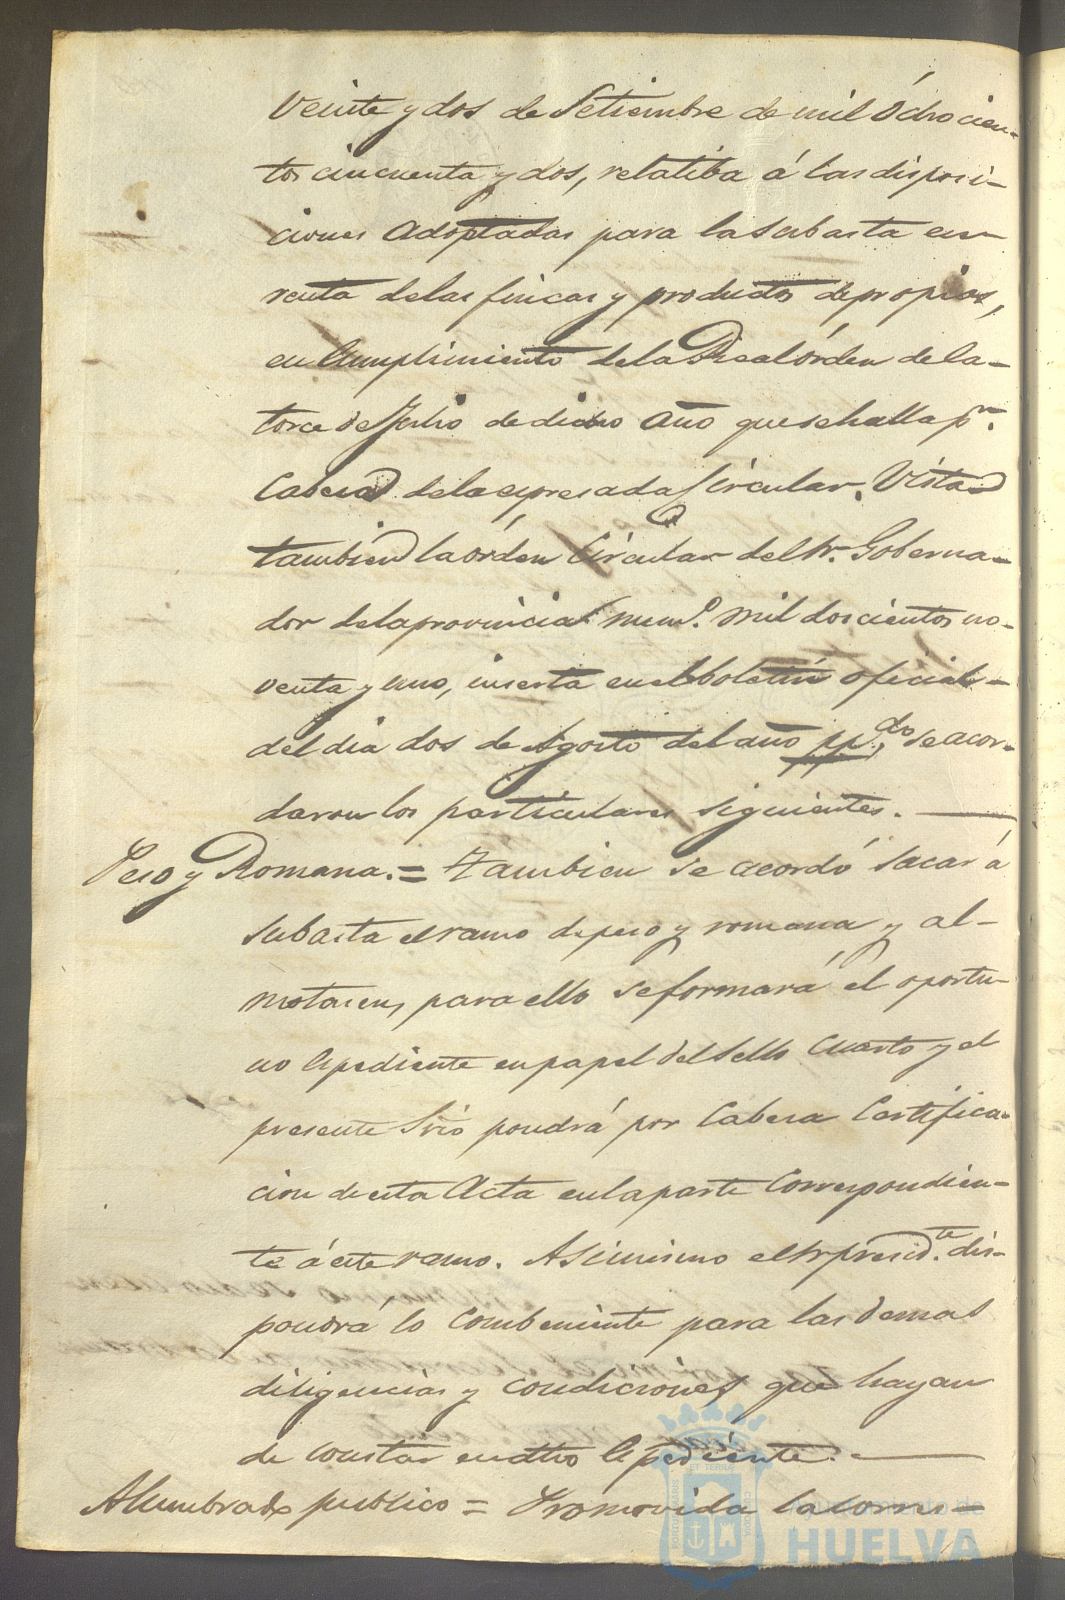 Veinte y dos de Setiembre de mil óchocien-
tos cincuenta y dos, relatiba á las disposi-
ciones adoptadas para la subasta en
renta de las fincas y productos de propios,
en Cumplimiento de la Real órden de ca-
torce de Julio de dicho año que se halla pr.
Cabeza de la espresada Circular. Vista
tambien la órden Circular del Sr. Goberna-
dor de la provincia numo. mil doscientos no-
venta y uno, inserta en el boletin oficial
del dia dos de Agosto del año pp.do, se acor-
daron los particulares siguientes.
Peso y Romana. = Tambien se acordó sacar á
subasta el ramo de peso y romana y al-
motacen, para ello se formará el oportu-
no Espediente en papel del Sello Cuarto y el
presente Srio pondrá por Cabeza Certifica-
cion de esta Acta en la parte Correspondien-
te á este ramo. Asimismo el Sr presid.te dis-
pondrá lo Combeniente para las demas
diligencias y condiciones que hayan
de constar en dho Espediente.
Alumbrado publico = Promovida la corres-
Ayuntamiento de
HUELVA